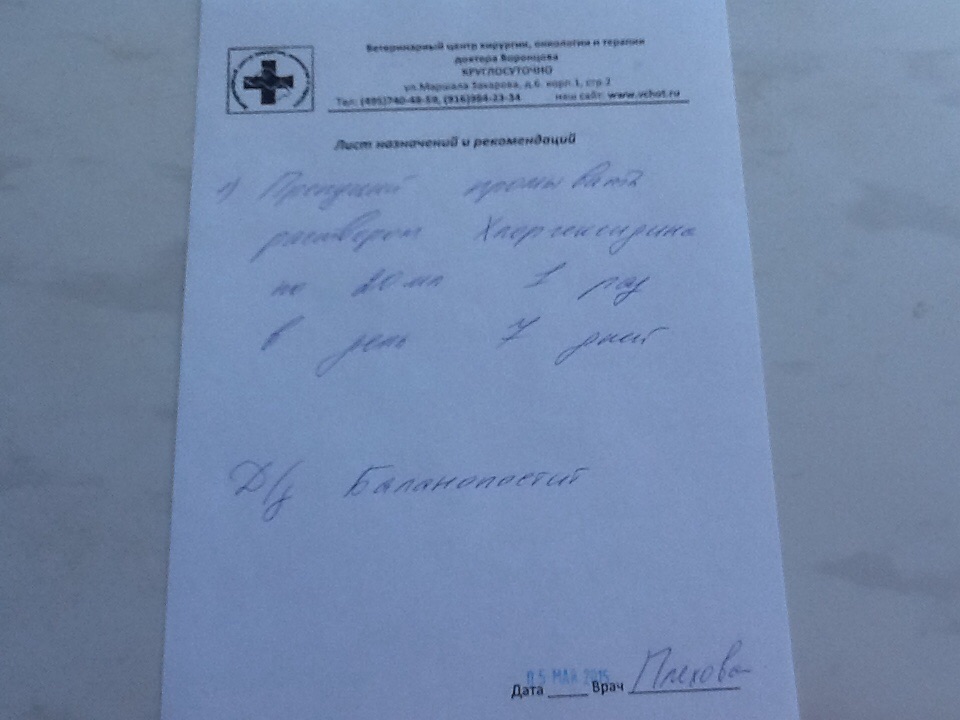 Ветеринарный центр хирургии, онкологии и терапии
доктора Воронцова
КРУГЛОСУТОЧНО
ул.Маршала Захарова, д.6. корп.1, стр.2
Тел: (495)740-48-59, (916)984-23-34 наш сайт: www.vchot.ru
Лист назначений и рекомендаций
1) Препуций промывать
раствором Хлоргексидина
по 20 мл 1 раз
в день 7 дней
Д/з Баланопостит
05 МАЯ 2015
Дата Врач Плехова